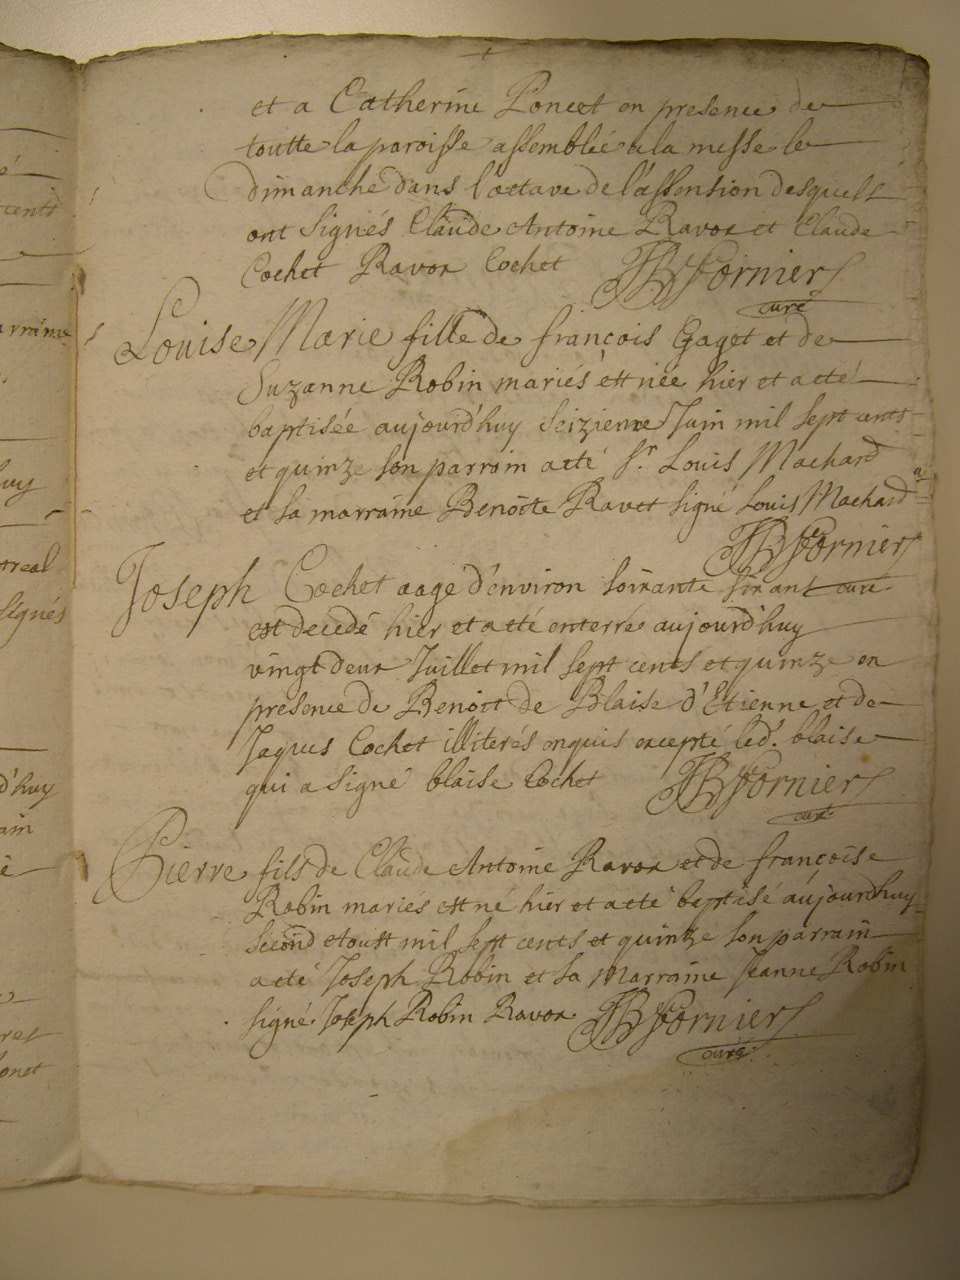 et a Catherine Poncet en presence de
toutte la paroisse assemblée a la messe le
dimanche dans l'octave de l'assension desquels
ont signés Claude Antoine Ravox et Claude
Cochet Ravox Cochet JB Fornier
curé
Louise Marie fille de françois Gaget et de
Suzanne Robin mariés est née hier et a eté
baptisée aujourd'huy seizieme Juin mil sept cents
et quinze son parrain a eté Sr. Louis Machard
et sa marraine Benoite Ravet signé Louis Machard
JB Fornier
curé
Joseph Cochet aagé d'environ soixante six ans
est decedé hier et a eté enterré aujourd'huy
vingt deux Juillet mil sept cents et quinze en
presence de Benoit de Blaise d'Etienne et de
Jaques Cochet illiterés enquis excepté led. blaise
qui a signé blaise Cochet JB Fornier
curé
Pierre fils de Claude Antoine Ravox et de françoise
Robin mariés est né hier et a eté baptisé aujourd'huy
second Aoust mil sept cents et quinze son parrain
a eté Joseph Robin et sa Marraine Jeanne Robin
signé Joseph Robin Ravox JB Fornier
curé